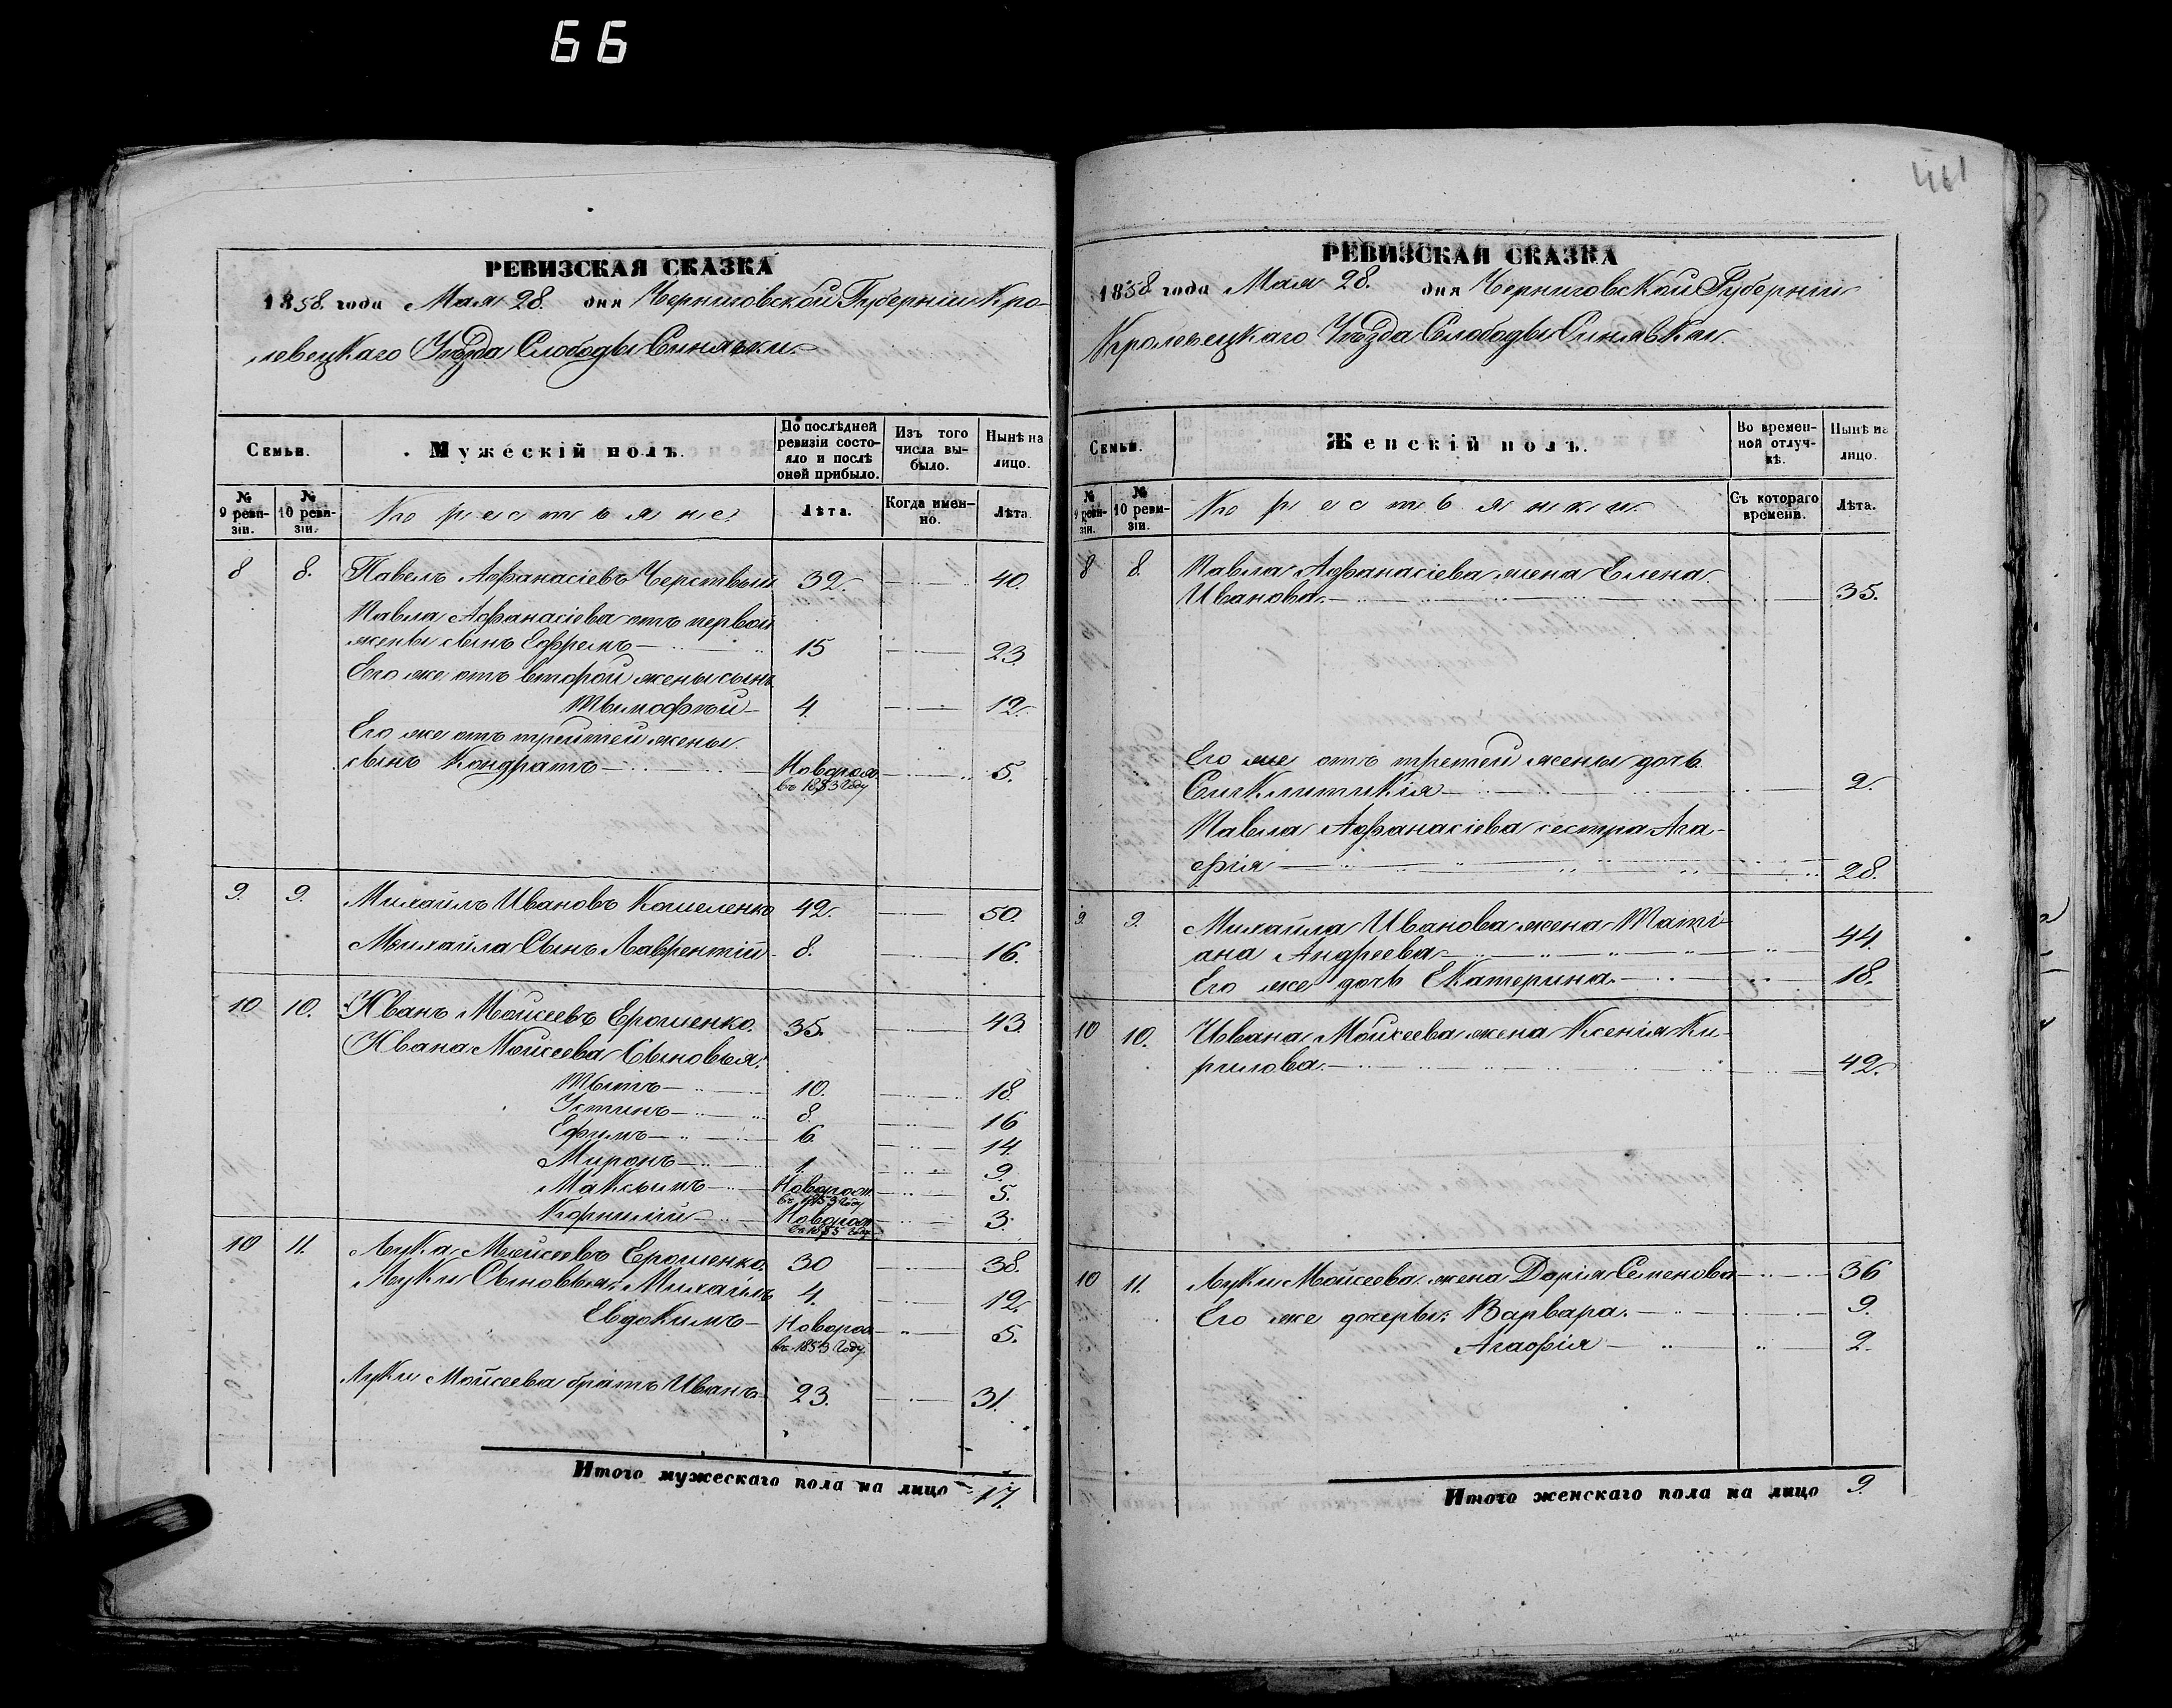 66
461
РЕВИЗСКАЯ СКАЗКА
1858. года Мая 28. дня Черниговской Губерніи Кро-
левецкаго Уѣзда Слободы Синявки.
Семьи.
Мужескій полъ.
По послѣдней ревизіи состояло и послѣ оной прибыло.
Изъ того числа выбыло.
Нынѣ на лицо.
№ 9 ревизіи.
№ 10 ревизіи.
Крестьяне
Лѣта.
Когда именно.
Лѣта.
8 8. Павелъ Афанасіевъ Черствый 32. 40.
Павла Афанасіева отъ первой
жены сынъ Ефремъ 15 23.
Его же отъ второй жены сынъ
Тымофѣй 4. 12.
Его же отъ третей жены
сынъ Кондратъ Новорож. 5.
въ 1853 Году
9. 9. Михайлъ Ивановъ Кошеленко 42. 50.
Михайла Сынъ Лаврентій 8. 16.
10 10. Иванъ Мойсеевъ Ерошенко. 35. 43.
Ивана Мойсеева Сыновья:
Тытъ 10. 18.
Устинъ 8. 16
Ефимъ 6. 14.
Миронъ 1. 9.
Максымъ Новорож. 5.
въ 1853 Году
Корнилій Новорож. 3.
въ 1855 Году
10 11. Лука Мойсеевъ Ерошенко. 30 38.
Луки Сыновья: Михайлъ 4. 12.
Евдокимъ Новорож. 5.
въ 1853 Году.
Луки Мойсеева братъ Иванъ 23. 31.
Итого мужескаго пола на лицо 17.
РЕВИЗСКАЯ СКАЗКА
1858 года Мая 28. дня Черниговской Губерніи
Кролевецкаго Уѣзда Слободы Синявки.
Семьи.
Женскій полъ.
Во временной отлучкѣ.
Нынѣ на лицо.
№ 9 ревизіи.
№ 10 ревизіи.
Крестьянки.
Съ котораго времени.
Лѣта.
8 8. Павла Афанасіева жена Елена
Иванова. 35.
Его же отъ третей жены дочь
Сиклитикія 2.
Павла Афанасіева сестра Ага-
фія 28.
9. 9. Михайла Иванова жена Тати-
ана Андреева 44.
Его же дочь Екатерина. 18.
10 10. Ивана Мойсеева жена Ксенія Ки-
рилова. 42.
10 11. Луки Мойсеева жена Дарія Семенова 36
Его же дочеры: Варвара. 9.
Агафія 2.
Итого женскаго пола на лицо 9.